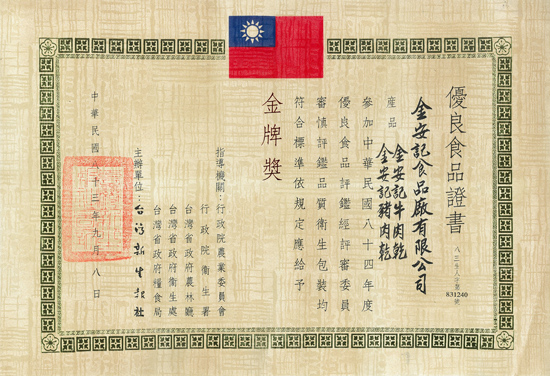 優良食品證書
831240
金安記食品廠有限公司
產品
金安記牛肉乾
金安記豬肉乾
參加中華民國八十四年度
優良食品評鑑經評審委員
審慎評鑑品質衛生包裝均
符合標準依規定應給予
金牌獎
指導機關:行政院農業委員會
行政院衛生署
台灣省政府農林廳
台灣省政府衛生處
台灣省政府糧食局
主辦單位:台灣新生報社
中華民國八十三年九月八日